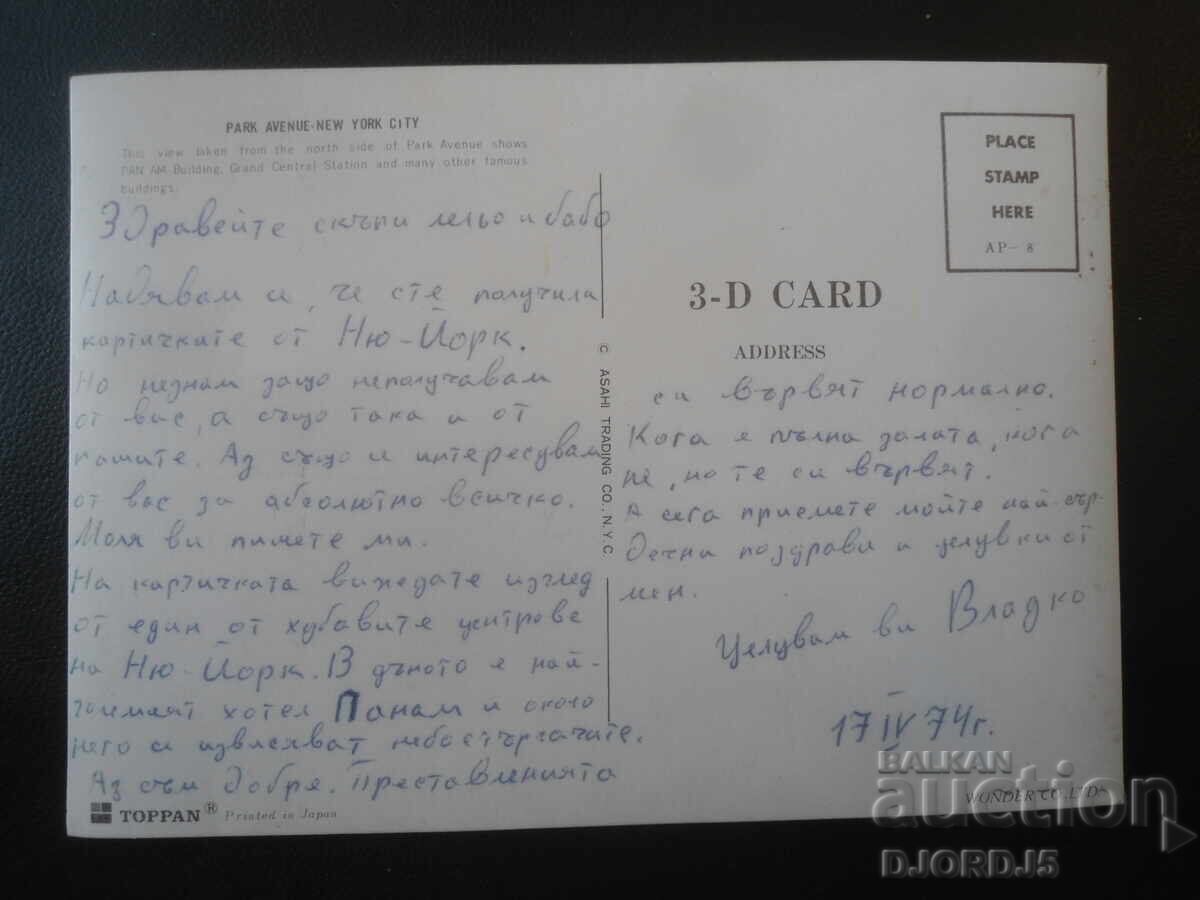 PARK AVENUE-NEW YORK CITY
This view taken from the north side of Park Avenue shows
PAN AM Building, Grand Central Station and many other famous
buildings.
Здравейте скъпи лельо и бабо
Надявам се, че сте получили
картичките от Ню-Йорк.
Но незнам защо неполучавам
от вас, а също така и от
нашите. Аз също се интересувам
от вас за абсолютно всичко.
Моля ви пишете ми.
На картичката виждате изглед
от един от хубавите центрове
на Ню-Йорк. В дъното е най-
големият хотел Панам и около
него се извисяват небостъргачите.
Аз съм добре. Преставленията
TOPPAN® Printed in Japan
© ASAHI TRADING CO., N.Y.C.
PLACE
STAMP
HERE
AP-8
3-D CARD
ADDRESS
си вървят нормално.
Кога е пълна залата, кога
не, но те си вървят.
А сега приемете мойте най-сър-
дечни поздрави и целувки от
мен.
Целувам ви Владко
17 IV 74г.
WONDER CO. LTD.
BALKAN
auction
DJORDJ5